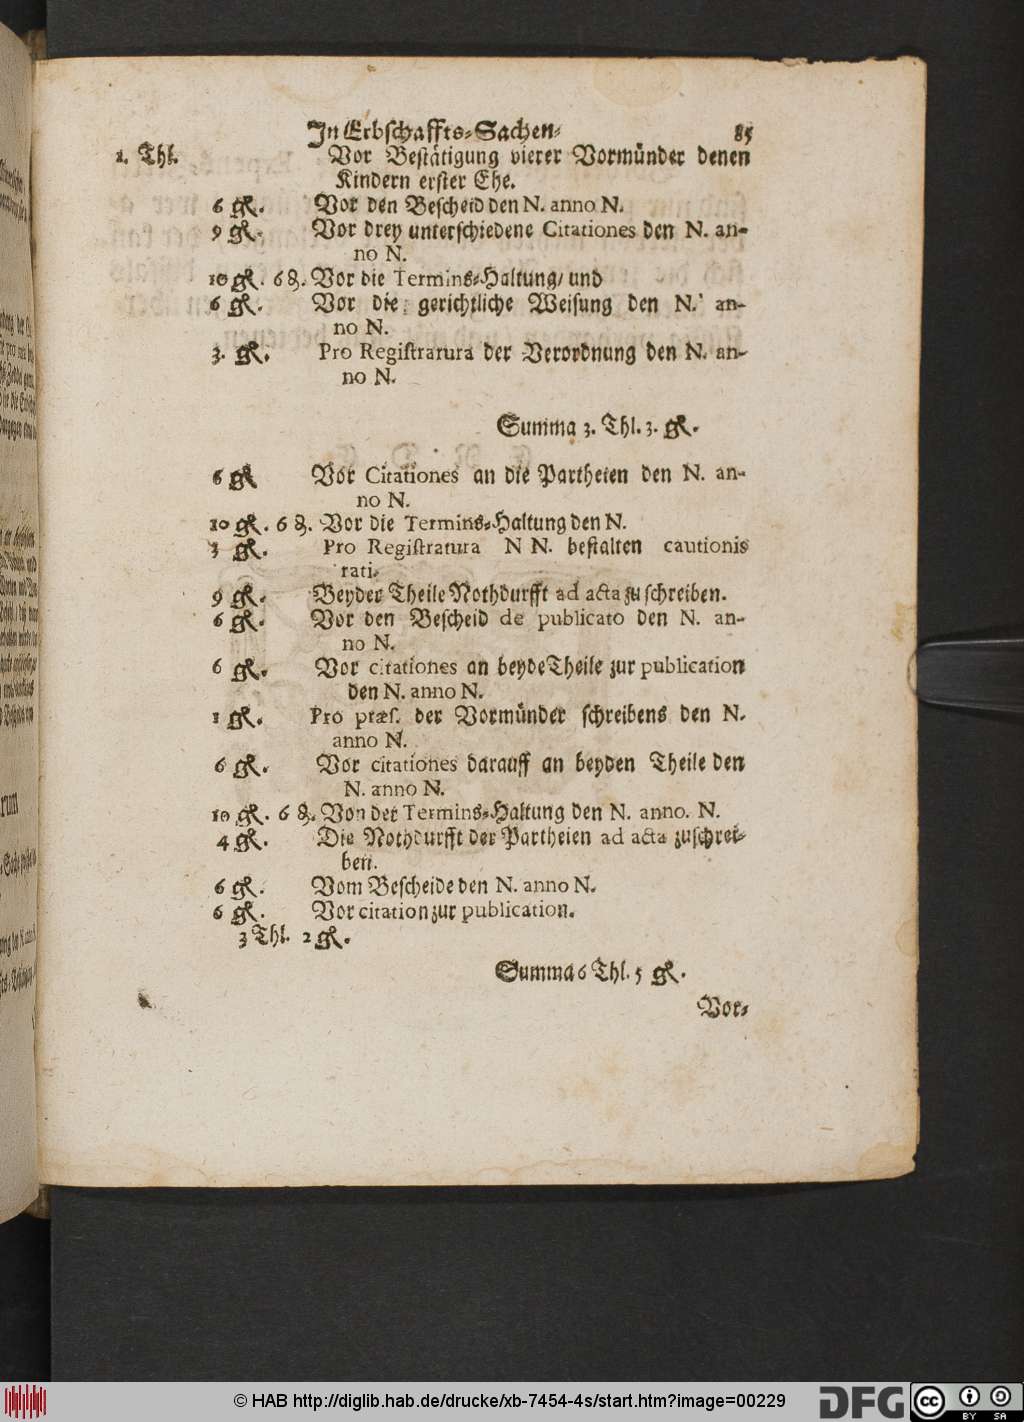 In Erbschaffts-Sachen- 85
1. Thl. Vor Bestätigung vierer Vormünder denen
Kindern erster Ehe.
6 gl. Vor den Bescheid den N. anno N.
9 gl. Vor drey unterschiedene Citationes den N. an-
no N.
10 gl. 6 ₰. Vor die Termins-Haltung/ und
6 gl. Vor die gerichtliche Weisung den N. an-
no N.
3. gl. Pro Registratura der Verordnung den N. an-
no N.
Summa 3. Thl. 3. gl.
6 gl Vor Citationes an die Partheien den N. an-
no N.
10 gl. 6 ₰. Vor die Termins-Haltung den N.
3 gl. Pro Registratura N N. bestalten cautionis
rati.
9 gl. Beyder Theile Nothdurfft ad acta zu schreiben.
6 gl. Vor den Bescheid de publicato den N. an-
no N.
6 gl. Vor citationes an beyde Theile zur publication
den N. anno N.
1 gl. Pro præs. der Vormünder schreibens den N.
anno N.
6 gl. Vor citationes darauff an beyden Theile den
N. anno N.
10 gl. 6 ₰. Von der Termins-Haltung den N. anno. N.
4 gl. Die Nothdurfft der Partheien ad acta zuschrei-
ben.
6 gl. Vom Bescheide den N. anno N.
6 gl. Vor citation zur publication.
3 Thl. 2 gl.
Summa 6 Thl. 5 gl.
Vor-
© HAB http://diglib.hab.de/drucke/xb-7454-4s/start.htm?image=00229
DFG
cc
BY SA